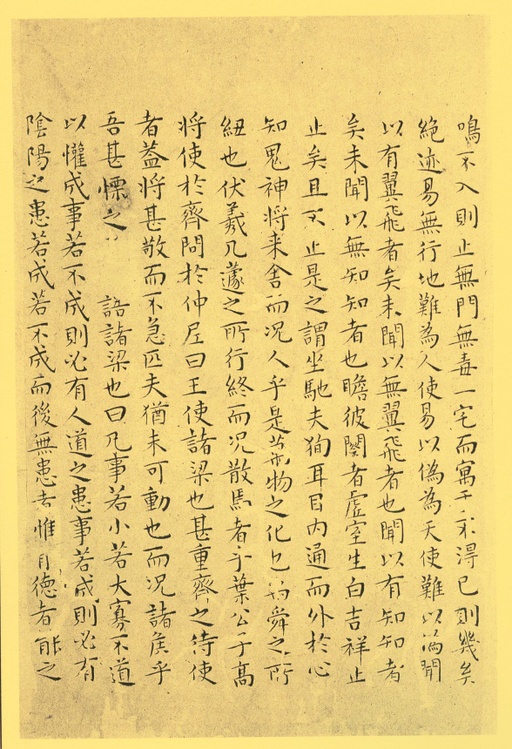 鳴不入則止無門無毒一宅而寓于不淂已則幾矣
絶迹易無行地難為人使易以偽為天使難以偽聞
以有翼飛者矣未聞以無翼飛者也聞以有知知者
矣未聞以無知知者也瞻彼闋者虛室生白吉祥止
止矣且不止是之謂坐馳夫徇耳目内通而外於心
知鬼神將来舍而况人乎是萬物之化也禹舜之所
紐也伏羲几蘧之所行終而况散焉者乎葉公子高
將使於齊問於仲尼曰王使諸梁也甚重齊之待使
者蓋將甚敬而不急匹夫猶未可動也而况諸侯乎
吾甚慄之 語諸梁也曰凡事若小若大寡不道
以懽成事若不成則必有人道之患事若成則必有
陰陽之患若成若不成而後無患者惟有德者能之